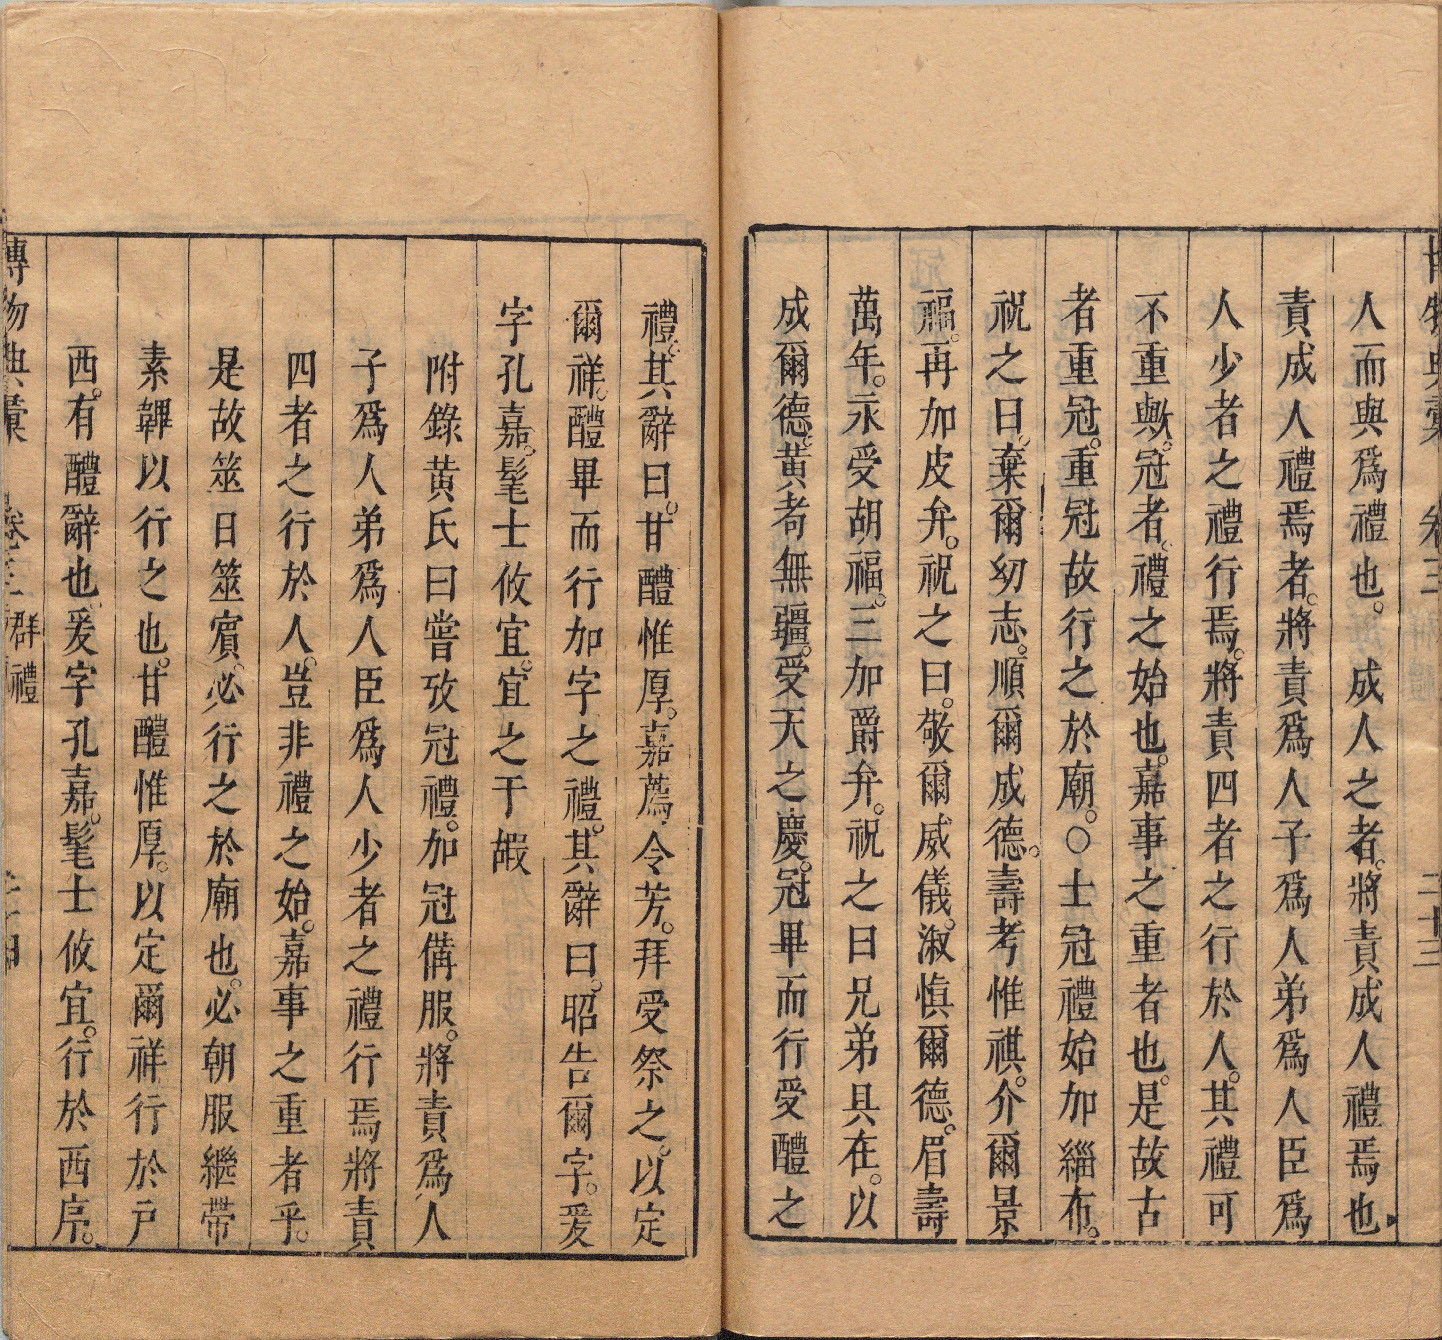 博物典彙 卷三 群禮 二十三
人而與爲禮也。成人之者。將責成人禮焉也
責成人禮焉者。將責爲人子爲人弟爲人臣爲
人少者之禮行焉。將責四者之行於人。其禮可
不重歟。冠者。禮之始也。嘉事之重者也。是故古
者重冠。重冠故行之於廟。○士冠禮始加緇布。
祝之曰。棄爾幼志。順爾成德。壽考惟祺。介爾景
福。再加皮弁。祝之曰。敬爾威儀。淑慎爾德。眉壽
萬年。永受胡福。三加爵弁。祝之曰兄弟具在。以
成爾德。黃耇無疆。受天之慶。冠畢而行受醴之
禮。其辭曰。甘醴惟厚。嘉薦令芳。拜受祭之。以定
爾祥。醴畢而行加字之禮。其辭曰。昭告爾字。爰
字孔嘉。髦士攸宜。宜之于嘏
附錄黃氏曰嘗攷冠禮。加冠備服。將責爲人
子爲人弟爲人臣爲人少者之禮行焉將責
四者之行於人。豈非禮之始。嘉事之重者乎。
是故筮日筮賓。必行之於廟也。必朝服緇帶
素韠以行之也。甘醴惟厚。以定爾祥行於戶
西。有醴辭也。爰字孔嘉。髦士攸宜。行於西序。
博物典彙 卷三 群禮